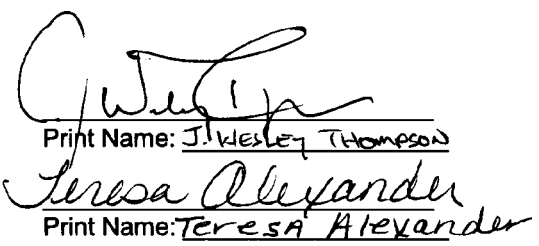 J. Wesley T
Print Name: J. WESLEY THOMPSON
Teresa Alexander
Print Name: Teresa Alexander